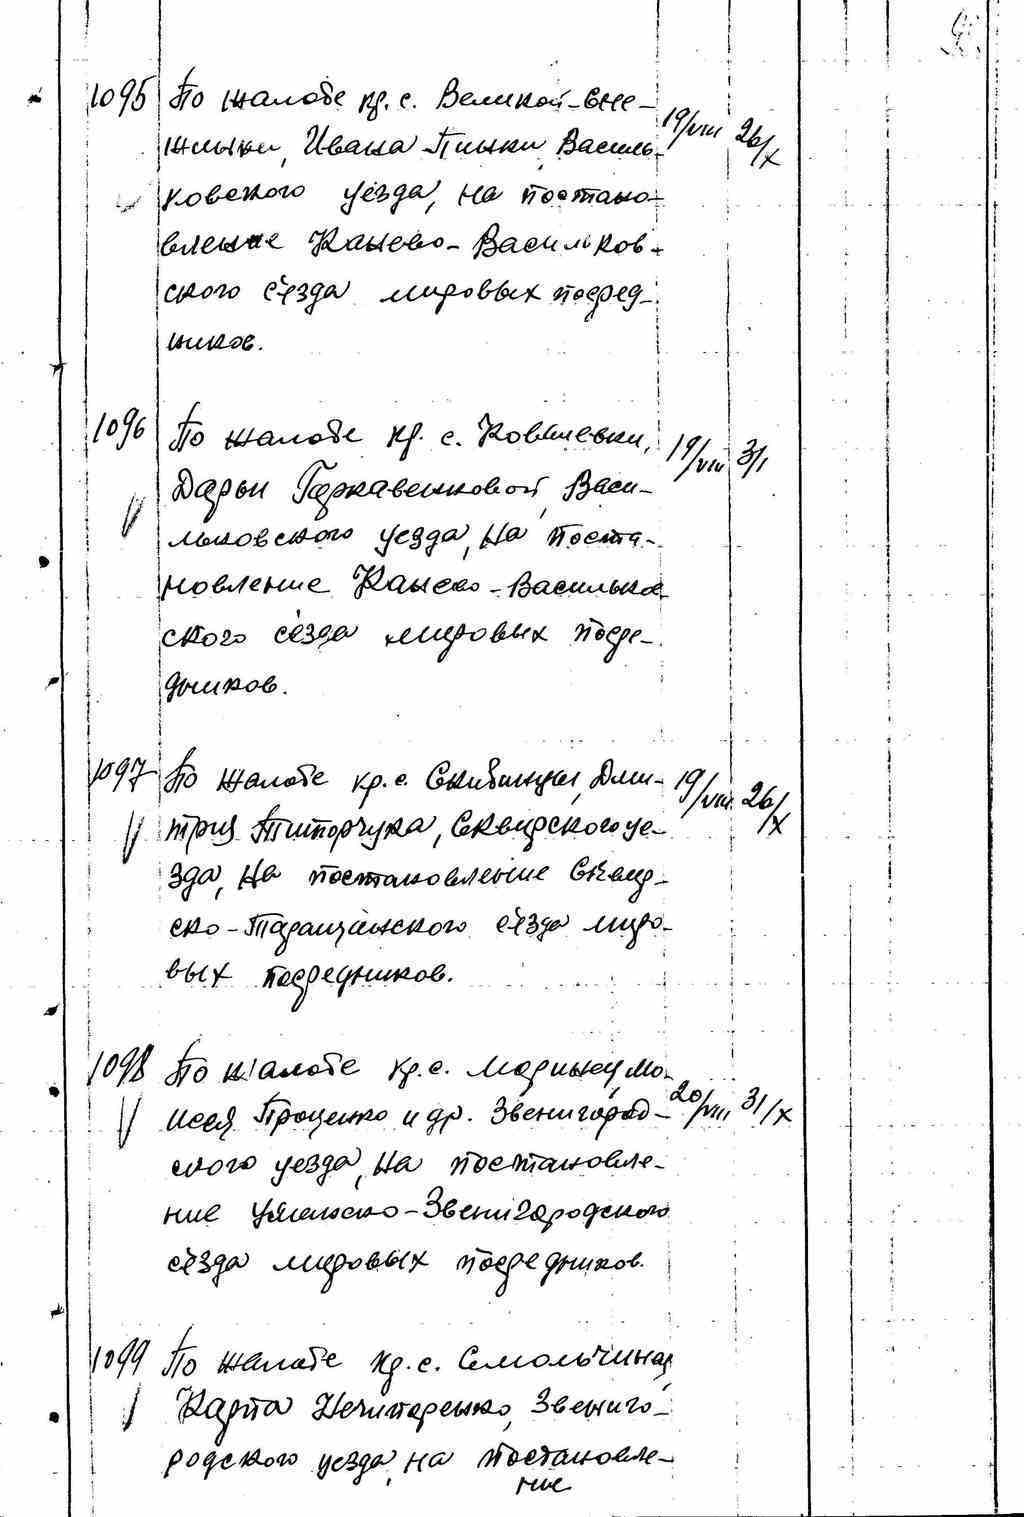 1095 По жалобе кр. с. Великой-Сне-
жинки, Ивана Пинки, Василь-
19/VIII 26/X
ковского уезда, на постано-
вление Канево-Васильков-
ского с'езда мировых посред-
ников.
1096 По жалобе кр. с. Ковалевки,
19/VIII 3/I
Дарьи Гаркавенковой, Васи-
льковского уезда, на поста-
новление Канево-Васильков-
ского с'езда мировых посре-
дников.
1097 По жалобе кр. с. Сквибинцы, Дми-
19/VIII 26/X
трия Титорчука, Сквирского уе-
зда, на постановление Сквир-
ско-Таращанского с'езда миро-
вых посредников.
1098 По жалобе кр. с. Маринки, Мо-
20/VIII 31/X
исея Проценко и др. Звенигород-
ского уезда, на постановле-
ние Уманско-Звенигородского
с'езда мировых посредников.
1099 По жалобе кр. с. Смольчиная,
Карпа Нечипоренко, Звениго-
родского уезда, на постановле-
ние